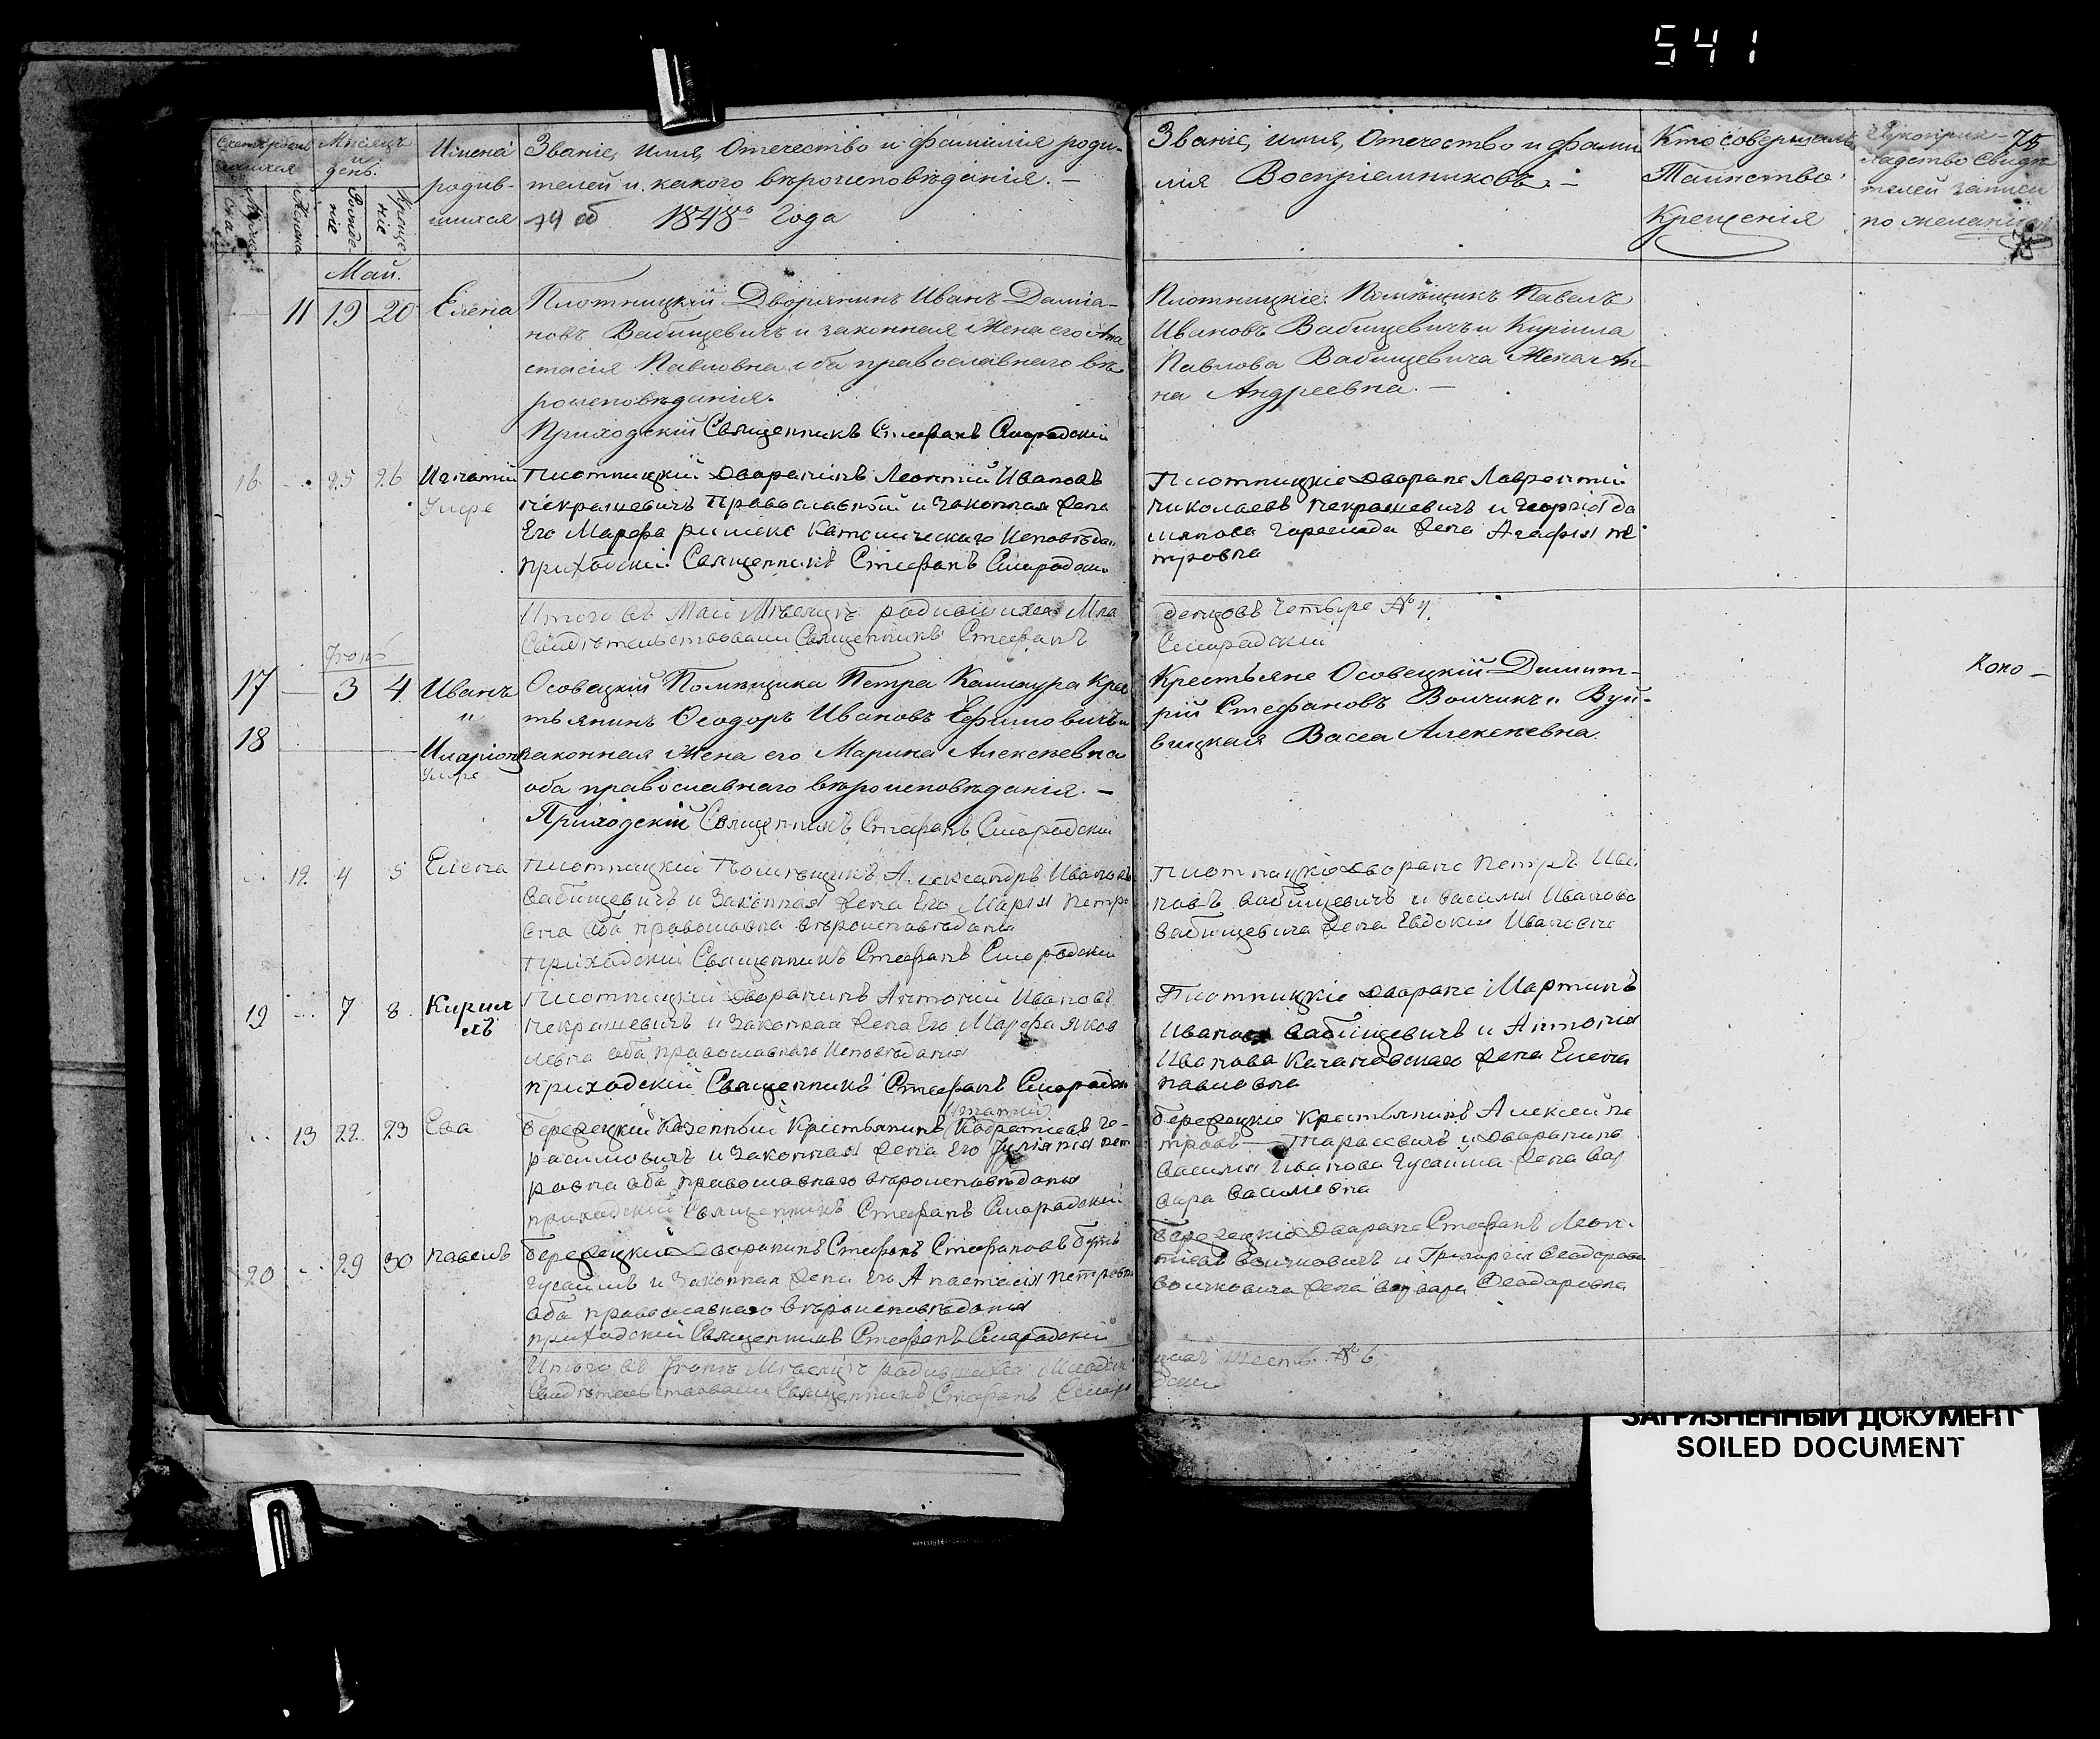 541
Счетъ родив
шихся
Мѣсяцъ
и
день.
Имена
родив-
шихся
Званіе, имя, Отечество и фамилія роди-
телей и какого вѣроисповѣданія. —
74 об 1848го Года
Рожде-
ніе
Креще
ніе
Званіе, имя, Отечество и фами
лія Воспріемниковъ. —
Кто совершалъ
Таинство
Крещенія
Рукоприк-
ладство свидѣ
телей записи
по желанію
75
Май.
11 19 20 Елена
Плотницкій Дворянинъ Иванъ Даміа-
новъ Вабищевичъ и законная Жена его Ана
стасія Павловна оба православнаго вѣ
роисповѣданія.
Приходскій Священникъ Стефанъ Смородскій
Плотницкіе: Помѣщикъ Павелъ
Ивановъ Вабищевичъ и Кирилла
Павлова Вабищевича Жена Ан-
на Андреевна. —
16 25 26 Игнатій
Умре
Плотницкій дворянинъ Леонтій Ивановъ
Некрашевичъ Православный и Законная Жена
Его Марфа римско Католическаго Исповѣдан
Приходскій Священникъ Стефанъ Смородски
Плотницкіе дворяне Лаврентій
Николаевъ Некрашевичъ и Георгія Да
Жена Агафія Пе
тровна
Итого въ Май Мѣсяцѣ родившихся Мла
денцовъ четыре № 4
Свидѣтельствовали Священникъ Стефанъ
Смородский
Іюнь
17 — 3 4 Иванъ
и
18 Иларіонъ
Умре
Осовецкій Помѣщика Петра Качинура Крес
тьянинъ Ѳеодоръ Ивановъ Ефимовичъ и
законная Жена его Марина Алексѣевна
оба православнаго вѣроисповѣданія. —
Приходскій Священникъ Стефанъ Смородскій
Крестьяне Осовецкій Димит-
рій Стефановъ Волчикъ и Вуй-
вицкая Васса Алексѣевна.
Коно —
12 4 5 Елена
Плотницкий Помѣщикъ Александръ Ивановъ
Вабищевичъ и Законная Жена Его Марія Петро
вна оба православна вѣроисповѣданія
Приходскій Священникъ Стефанъ Смородскій
Плотницкіе дворяне Петръ Ива
новъ Вабищевичъ и Василія Иванова
Вабищевича Жена Евдокія Ивановна
19 7 8 Кирил
лъ
Плотницкий дворянинъ Антоній Ивановъ
Некрашевичъ и Законная Жена Его Марфа Яков
левна оба православнаго Исповѣданія
Приходскій Священникъ Стефанъ Смородски
Плотницкіе дворяне Мартинъ
Ивановъ Вабищевичъ и Антонія
Иванова Качановскаго Жена Елена
Павловна
13 22 23 Ева
Бережцкій Казенный Крестьянинъ Ге-
расимовичъ и Законная Жена Его Іуліанія Пет
ровна оба православнаго вѣроисповѣданія
Приходскій Священникъ Стефанъ Смородский
Бережцкіе Крестьянинъ Алексей Пе
тровъ — Тарасевичъ и дворянина
Василія Иванова Гусаима Жена Вар
вара Василіевна
20 29 30 Павелъ
Бережецкій дворянинъ Стефанъ Стефановъ
Гусаимъ и Законная Жена его Анастасія Петровна
оба православнаго вѣроисповѣданія
приходскій Священникъ Стефанъ Смородскій
Бережецкіе дворяне Стефанъ Леон-
тіевъ Волчковичъ и Григорія Ѳеодорова
Волчковича Жена Варвара Ѳеодоровна
Итого въ Іюнѣ Мѣсяцѣ родившихся Младен
цовъ шесть № 6
Свидѣтельствовали Священникъ Стефанъ Смор
дский
ЗАГРЯЗНЕННЫЙ ДОКУМЕНТ
SOILED DOCUMENT